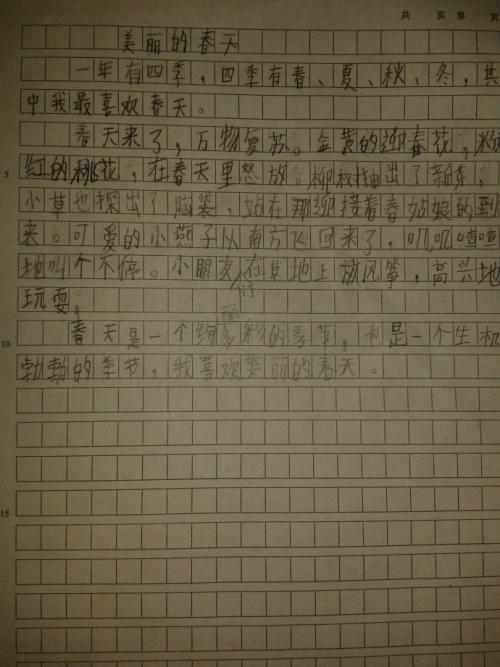 共 页 第 页
美丽的春天
一年有四季，四季有春、夏、秋、冬，其
中我最喜欢春天。
春天来了，万物复苏。金黄的迎春花，粉
5 红的桃花，在春天里怒放。柳枝抽出了新芽，
小草也探出了脑袋，站在那迎接着春姑娘的到
来。可爱的小燕子从南方飞回来了，叽叽喳喳
地叫个不停。小朋友们在草地上放风筝，高兴地
玩耍。
10 春天是一个绚丽多彩的季节，也是一个生机
勃勃的季节，我喜欢美丽的春天。
15